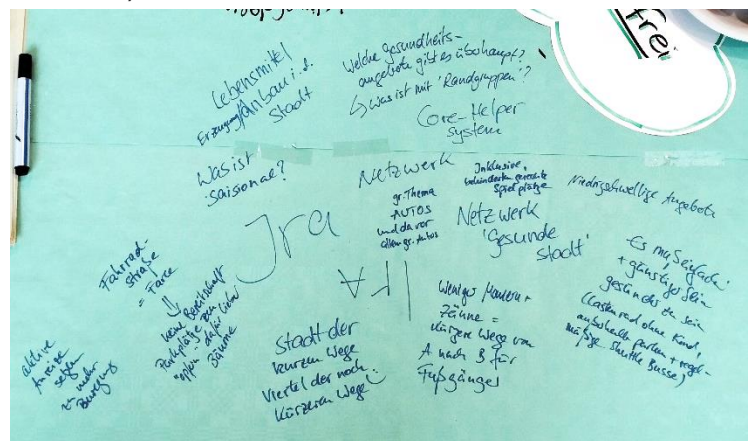 frei
Lebensmittel
Erzeugung/Anbau i. d.
Stadt
Welche Gesundheits-
angebote gibt es überhaupt?
↳ Was ist mit 'Randgruppen'?
Core-Helper
system
Was ist
saisonal?
Netzwerk
gr. Thema
AUTOS
und davor
gr. Autos
Inklusive,
behindertengerechte
Spielplätze
Niedrigschwellige Angebote
Netzwerk
'Gesunde
Stadt'
Fahrrad-
straße
= Farce
⇓
keine Bereitschaft
Parkplätze zu
opfern dafür lieber
Bäume
aktive
Anreize
setzen
zu mehr
Bewegung
Stadt der
kurzen Wege
Viertel der noch
kürzeren Wege
Weniger Mauern +
Zäune =
kürzere Wege von
A nach B für
Fußgänger
Es muss einfach
+ günstig sein
gesünder zu sein
(Lastenrad ohne Kind,
außerhalb parken + regel-
mäßige Shuttle Busse)